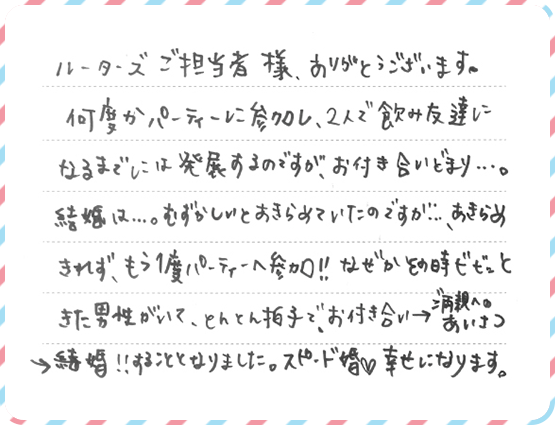 ルーターズ ご担当者 様、ありがとうございます。
何度かパーティーに参加し、2人で飲み友達に
なるまでには発展するのですが、お付き合いどまり…。
結婚は…。むずかしいとあきらめていたのですが…、あきらめ
きれず、もう1度パーティーへ参加!! なぜかその時ビビッと
きた男性がいて、とんとん拍子で、お付き合い→ご両親へのあいさつ
→結婚!!することとなりました。スピード婚♡幸せになります。